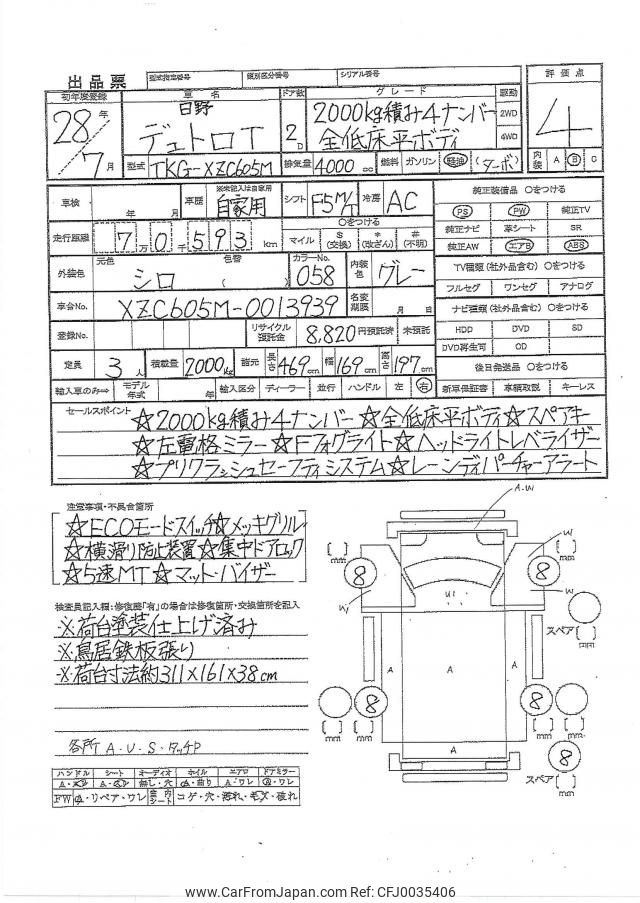 出品票 型式指定番号 類別区分番号 シリアル番号 評価点
初年度登録 車名 ドア数 グレード 駆動
28年 日野 2D 2000kg積み4ナンバー 2WD 4
7月 デュトロT 全低床平ボディ 4WD
型式 TKG-XZC605M 排気量 4000cc 燃料 ガソリン 軽油 (ターボ) 内装 A B C
車検 年 月 車歴 ※未記入は自家用 自家用 シフト F5M/T 冷房 AC 純正装備品 ○をつける
PS PW 純正TV
走行距離 7万0千593km ○をつける マイル $(交換) *(改ざん) #(不明) 純正ナビ 革シート SR
純正AW エアB ABS
外装色 元色 シロ 色替 ( ) カラーNo. 058 内装色 グレー TV種類(社外品含む) ○をつける
フルセグ ワンセグ アナログ
車台No. XZC605M-0013939 名変期限 月 日 ナビ種類(社外品含む) ○をつける
登録No. リサイクル預託金 8,820円預託済 未預託 HDD DVD SD
DVD再生可 OD
定員 3人 積載量 2000kg 諸元 長さ469cm 幅169cm 高さ197cm 後日発送品 ○をつける
輸入車のみ⇒ モデル年式 年 輸入区分 ディーラー 並行 ハンドル 左 右 新車保証書 車輌取説 キーレス
セールスポイント
☆2000kg積み4ナンバー☆全低床平ボディ☆スペアキー
☆左電格ミラー☆Fフォグライト☆ヘッドライトレベライザー
☆プリクラッシュセーフティシステム☆レーンディパーチャーアラート
注意事項・不具合箇所
☆ECOモードスイッチ☆メッキグリル
☆横滑り防止装置☆集中ドアロック
☆5速MT☆マット・バイザー
検査員記入欄:修復歴「有」の場合は修復箇所・交換箇所を記入
※荷台塗装仕上げ済み
※鳥居鉄板張り
※荷台寸法約311×161×38cm
各所A・U・S・タッチP
ハンドル シート オーディオ ホイル エアロ ドアミラー
FW A・リペア・ワレ 室内シート コゲ・穴・汚れ・破れ
A・W
W
W
W
U1
A
A
A
A
8
8
8
8
8
スペア
スペア
mm
mm
mm
mm
mm
mm
mm
mm
www.CarFromJapan.com Ref: CFJ0035406